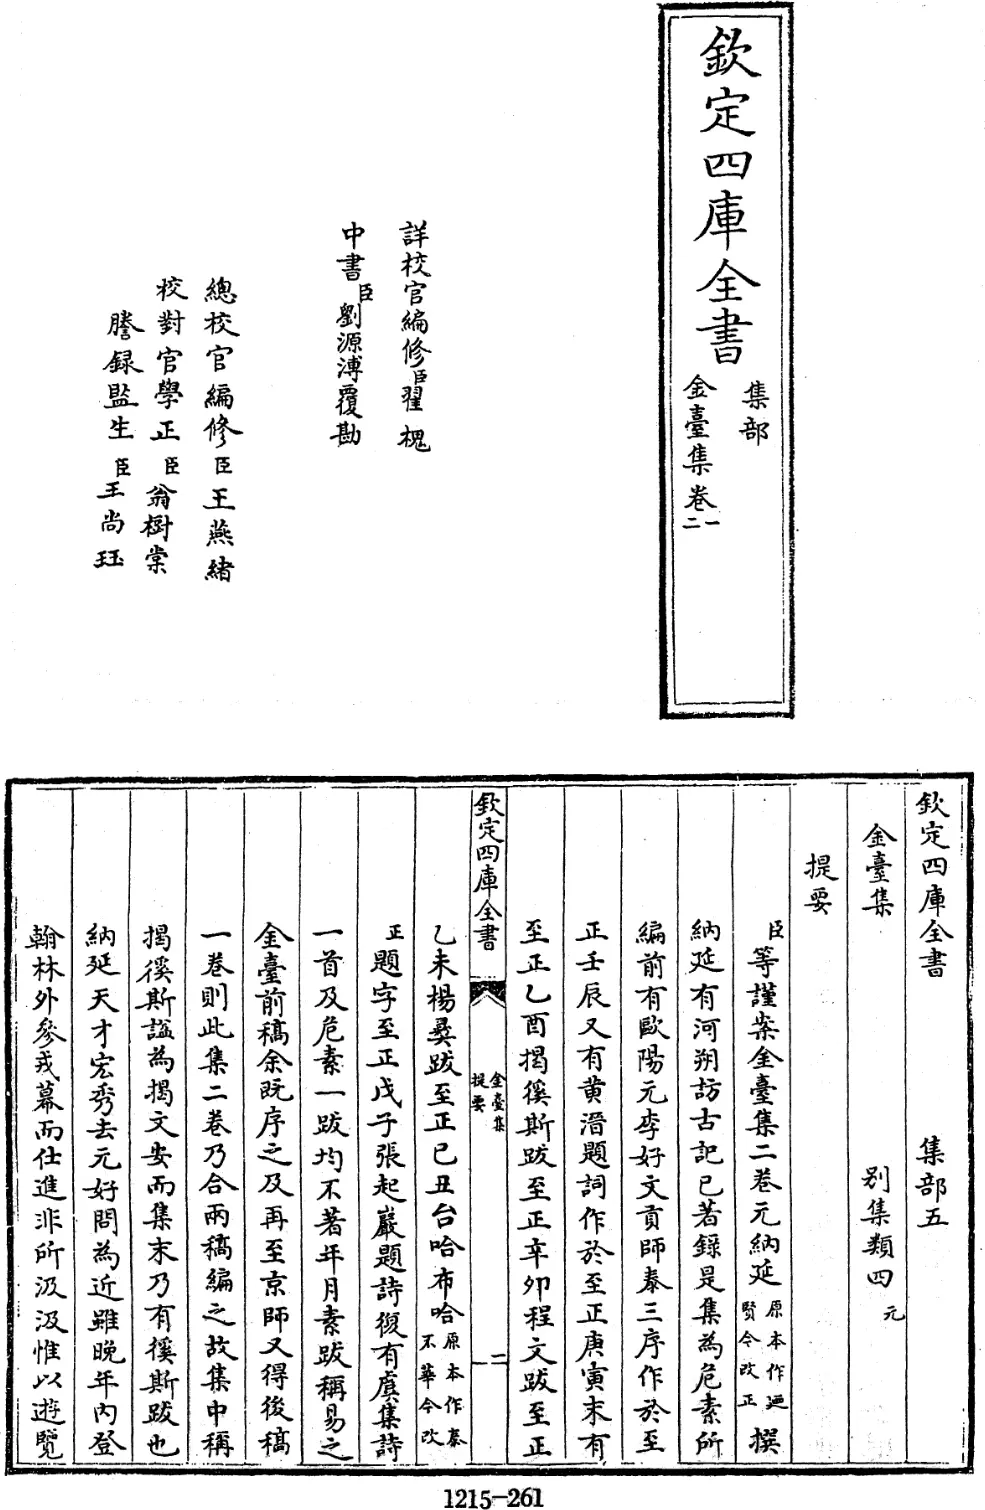 欽定四庫全書
集部
金臺集卷一
二
詳校官編修臣翟槐
中書臣劉源溥覆勘
總校官編修臣王燕緒
校對官學正臣翁樹棠
謄録監生臣王尚珏
欽定四庫全書 集部五
金臺集 别集類四元
提要
臣等謹案金臺集二卷元納延原本作廼賢今改正撰
納延有河朔訪古記已著録是集為危素所
編前有歐陽元李好文貢師泰三序作於至
正壬辰又有黄溍題詞作於至正庚寅末有
至正乙酉揭徯斯跋至正辛卯程文跋至正
欽定四庫全書 金臺集提要 二
乙未楊彝跋至正己丑台哈布哈原本作泰不華今改
正題字至正戊子張起巖題詩復有虞集詩
一首及危素一跋均不著年月素跋稱易之
金臺前稿余既序之及再至京師又得後稿
一卷則此集二卷乃合兩稿編之故集中稱
揭徯斯諡為揭文安而集末乃有徯斯跋也
納延天才宏秀去元好問為近雖晚年内登
翰林外參戎幕而仕進非所汲汲惟以遊覽
1215-261